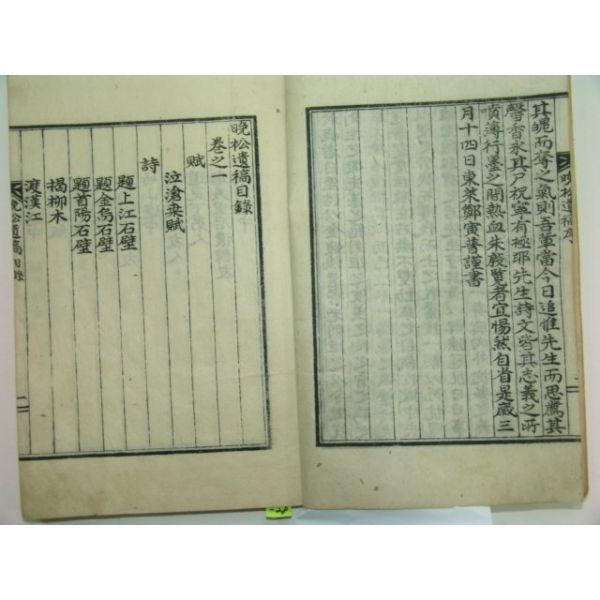 晚松遺稿序
其魄而奪之氣則吾輩當今日追惟先生而思薦其
馨香永其尸祝寧有極耶先生詩文皆其志義之所
噴薄行墨之間熱血朱殷覽者宜惕然自省是歲三
月十四日東萊鄭寅普謹書
晚松遺稿目錄
卷之一
賦
泣滄桑賦
詩
題上江石壁
題金烏石壁
題首陽石壁
榻柳木
渡漢江
晚松遺稿 目錄
二